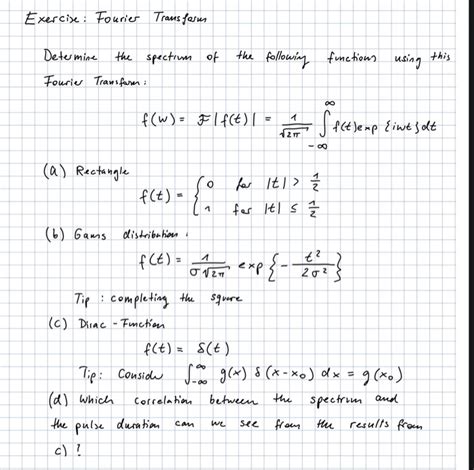 Exercise: Fourier Transform
Determine the spectrum of the following functions using this
Fourier Transform:
f(w) = F|f(t)| = 1/√2π ∫_{-∞}^{∞} f(t) exp {iwt} dt
(a) Rectangle
f(t) = { 0 for |t| > 1/2
1 for |t| ≤ 1/2
(b) Gauss distribution:
f(t) = 1/σ√2π exp{- t²/2σ²}
Tip: completing the square
(c) Dirac-Function
f(t) = δ(t)
Tip: Consider ∫_{-∞}^{∞} g(x) δ(x-x₀) dx = g(x₀)
(d) Which correlation between the spectrum and
the pulse duration can we see from the results from
c) ?